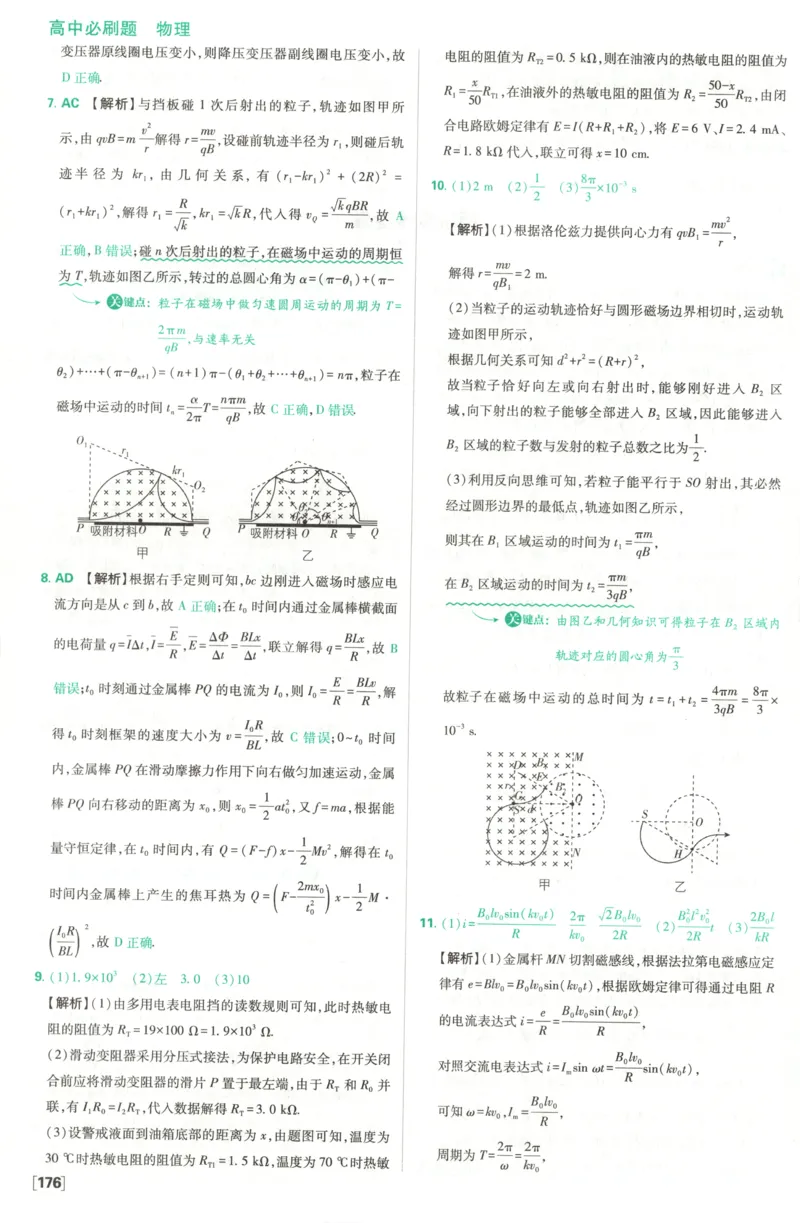 高中必刷题 物理
变压器原线圈电压变小,则降压变压器副线圈电压变小,故
D 正确.
7. AC 【解析】与挡板碰 1 次后射出的粒子,轨迹如图甲所
示,由 qvB=m v²/r 解得 r=mv/qB,设碰前轨迹半径为 r₁,则碰后轨
迹半径为 kr₁,由几何关系,有 (r₁-kr₁)² + (2R)² =
(r₁+kr₁)²,解得 r₁=R/√k,kr₁=√kR,代入得 v_Q=√kqBR/m,故 A
正确,B 错误;碰 n 次后射出的粒子,在磁场中运动的周期恒
为 T,轨迹如图乙所示,转过的总圆心角为 α=(π-θ₁)+(π-
关键点:粒子在磁场中做匀速圆周运动的周期为 T=
2πm/qB,与速率无关
θ₂)+⋯+(π-θₙ₊₁)=(n+1)π-(θ₁+θ₂+⋯+θₙ₊₁)=nπ,粒子在
磁场中运动的时间 tₙ=α/2π T=nπm/qB,故 C 正确,D 错误.
O₁ r₁ kr₁ O₂
P 吸附材料 O R Q
甲
θ₁ θₙ₊₁
P 吸附材料 O R Q
乙
8. AD 【解析】根据右手定则可知,bc 边刚进入磁场时感应电
流方向是从 c 到 b,故 A 正确;在 t₀ 时间内通过金属棒横截面
的电荷量 q=I̅Δt,I̅=E̅/R,E̅=ΔΦ/Δt=BLx/Δt,联立解得 q=BLx/R,故 B
错误;t₀ 时刻通过金属棒 PQ 的电流为 I₀,则 I₀=E/R=BLv/R,解
得 t₀ 时刻框架的速度大小为 v=I₀R/BL,故 C 错误;0~t₀ 时间
内,金属棒 PQ 在滑动摩擦力作用下向右做匀加速运动,金属
棒 PQ 向右移动的距离为 x₀,则 x₀=1/2 at₀²,又 f=ma,根据能
量守恒定律,在 t₀ 时间内,有 Q=(F-f)x-1/2 Mv²,解得在 t₀
时间内金属棒上产生的焦耳热为 Q=(F-2mx₀/t₀²)x-1/2 M·
(I₀R/BL)²,故 D 正确.
9. (1)1.9×10³ (2)左 3.0 (3)10
【解析】(1)由多用电表电阻挡的读数规则可知,此时热敏电
阻的阻值为 R_T=19×100 Ω=1.9×10³ Ω.
(2)滑动变阻器采用分压式接法,为保护电路安全,在开关闭
合前应将滑动变阻器的滑片 P 置于最左端,由于 R_T 和 R₀ 并
联,有 I₁R₀=I₂R_T,代入数据解得 R_T=3.0 kΩ.
(3)设警戒液面到油箱底部的距离为 x,由题图可知,温度为
30 ℃时热敏电阻的阻值为 R_T1=1.5 kΩ,温度为 70 ℃时热敏
[176]
电阻的阻值为 R_T2=0.5 kΩ,则在油液内的热敏电阻的阻值为
R₁=x/50 R_T1,在油液外的热敏电阻的阻值为 R₂=(50-x)/50 R_T2,由闭
合电路欧姆定律有 E=I(R+R₁+R₂),将 E=6 V、I=2.4 mA、
R=1.8 kΩ 代入,联立可得 x=10 cm.
10. (1)2 m (2)1/2 (3)8π/3×10⁻³ s
【解析】(1)根据洛伦兹力提供向心力有 qvB₁=mv²/r,
解得 r=mv/qB₁=2 m.
(2)当粒子的运动轨迹恰好与圆形磁场边界相切时,运动轨
迹如图甲所示,
根据几何关系可知 d²+r²=(R+r)²,
故当粒子恰好向左或向右射出时,能够刚好进入 B₂ 区
域,向下射出的粒子能够全部进入 B₂ 区域,因此能够进入
B₂ 区域的粒子数与发射的粒子总数之比为1/2.
(3)利用反向思维可知,若粒子能平行于 SO 射出,其必然
经过圆形边界的最低点,轨迹如图乙所示,
则其在 B₁ 区域运动的时间为 t₁=πm/qB,
在 B₂ 区域运动的时间为 t₂=πm/3qB,
关键点:由图乙和几何知识可得粒子在 B₂ 区域内
轨迹对应的圆心角为π/3
故粒子在磁场中运动的总时间为 t=t₁+t₂=4πm/3qB=8π/3×
10⁻³ s.
M D B₁ E r B₂ C O S d N
甲
S O H
乙
11. (1)i=B₀lv₀sin(kv₀t)/R 2π/kv₀ √2B₀lv₀/2R (2)B₀²l²v₀²/2R t (3)2B₀l/kR
【解析】(1)金属杆 MN 切割磁感线,根据法拉第电磁感应定
律有 e=Blv₀=B₀lv₀sin(kv₀t),根据欧姆定律可得通过电阻 R
的电流表达式 i=e/R=B₀lv₀sin(kv₀t)/R,
对照交流电表达式 i=Iₘsin ωt=B₀lv₀/R sin(kv₀t),
可知 ω=kv₀,Iₘ=B₀lv₀/R,
周期为 T=2π/ω=2π/kv₀,